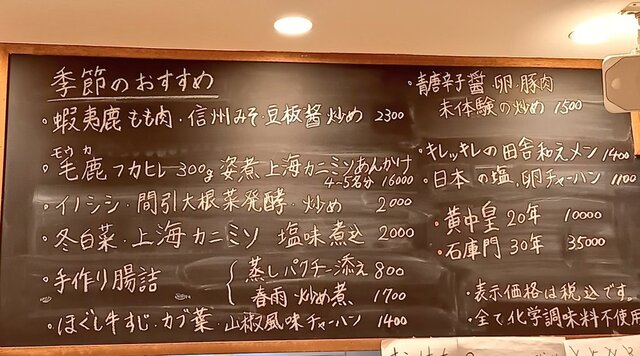 季節のおすすめ
・蝦夷鹿もも肉・信州みそ・豆板醤炒め 2300
モウカ
・毛鹿フカヒレ300g姿煮上海カニミソあんかけ
4-5名分 16000
・イノシシ・間引大根菜発酵・炒め 2000
・冬白菜・上海カニミソ 塩味煮込 2000
・手作り腸詰 { 蒸しパクチー添え 800
春雨炒め煮 1700
・ほぐし牛すじ・カブ葉・山椒風味チャーハン 1400
・青唐辛子醤・卵・豚肉
未体験の炒め 1500
・キレッキレの田舎和えメン 1400
・日本の塩・卵チャーハン 1100
・黄中皇20年 10000
・石庫門30年 35000
・表示価格は税込です。
・全て化学調味料不使用